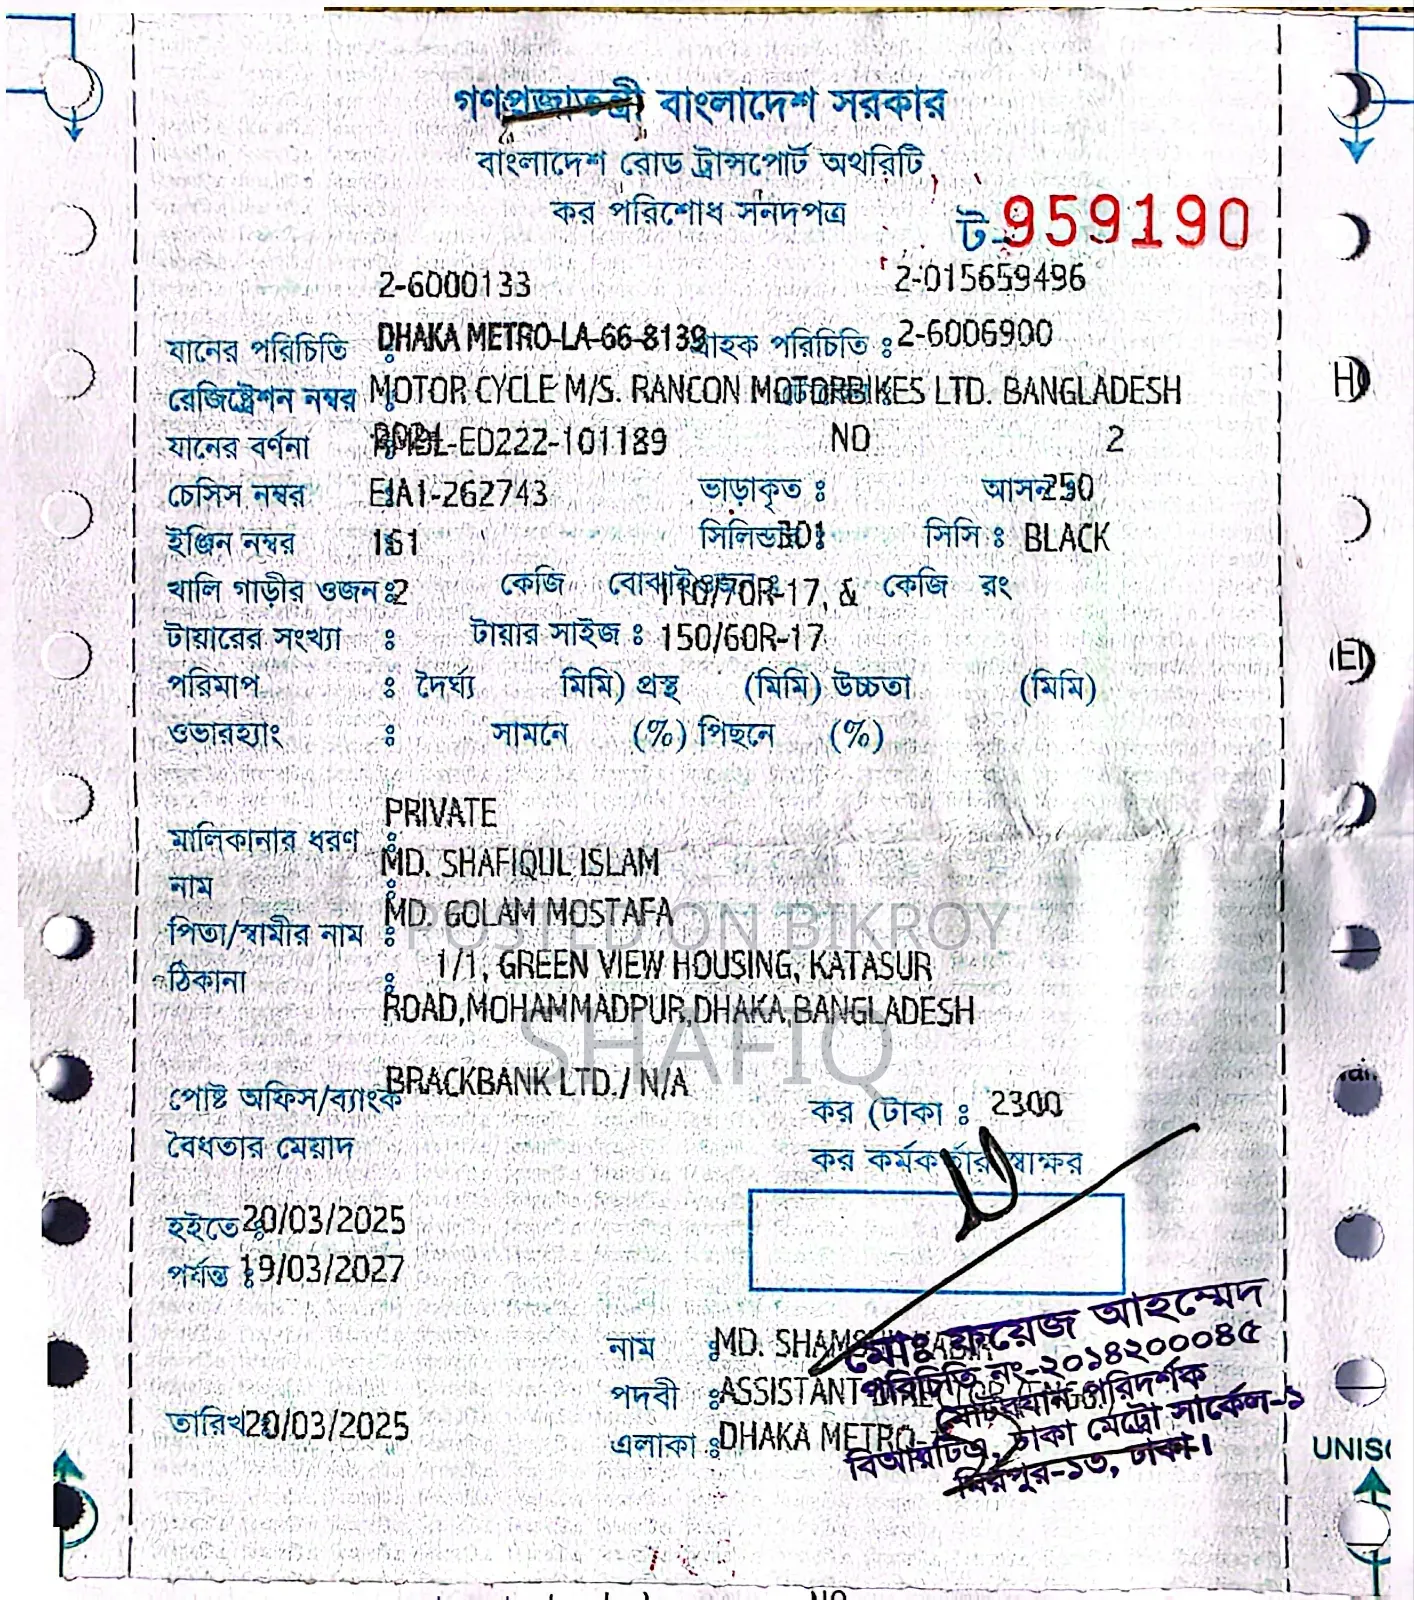 গণপ্রজাতন্ত্রী বাংলাদেশ সরকার
বাংলাদেশ রোড ট্রান্সপোর্ট অথরিটি
কর পরিশোধ সনদপত্র
ট-959190
2-6000133 2-015659496
যানের পরিচিতি : DHAKA METRO-LA-66-8139 গ্রাহক পরিচিতি : 2-6006900
রেজিষ্ট্রেশন নম্বর : MOTOR CYCLE M/S. RANCON MOTORBIKES LTD. BANGLADESH
যানের বর্ণনা : RMBL-ED222-101189 NO 2
চেসিস নম্বর : EJA1-262743 ভাড়াকৃত : আসন : 250
ইঞ্জিন নম্বর : 161 সিলিন্ডার : 301 সিসি : BLACK
খালি গাড়ীর ওজন : 2 কেজি বোঝাই ওজন : 110/70R-17, & কেজি রং
টায়ারের সংখ্যা : টায়ার সাইজ : 150/60R-17
পরিমাপ : দৈর্ঘ্য মিমি) প্রস্থ (মিমি) উচ্চতা (মিমি)
ওভারহ্যাং : সামনে (%) পিছনে (%)
PRIVATE
মালিকানার ধরণ :
MD. SHAFIQUL ISLAM
নাম :
MD. GOLAM MOSTAFA
পিতা/স্বামীর নাম :
POSTED ON BIKROY
1/1, GREEN VIEW HOUSING, KATASUR
ঠিকানা :
ROAD,MOHAMMADPUR,DHAKA,BANGLADESH
SHAFIQ
BRACKBANK LTD./ N/A
পোষ্ট অফিস/ব্যাংক কর (টাকা : 2300
বৈধতার মেয়াদ কর কর্মকর্তার স্বাক্ষর
হইতে : 20/03/2025
পর্যন্ত : 19/03/2027
নাম : MD. SHAMSUL KABIR
মোঃ ফয়েজ আহম্মেদ
পরিচিতি নং-২০১৪২০০০৪৫
পদবী : ASSISTANT
মোটরযান পরিদর্শক
তারিখ : 20/03/2025 এলাকা : DHAKA METRO-
বিআরটিএ, ঢাকা মেট্রো সার্কেল-১
মিরপুর-১৩, ঢাকা।
UNISO